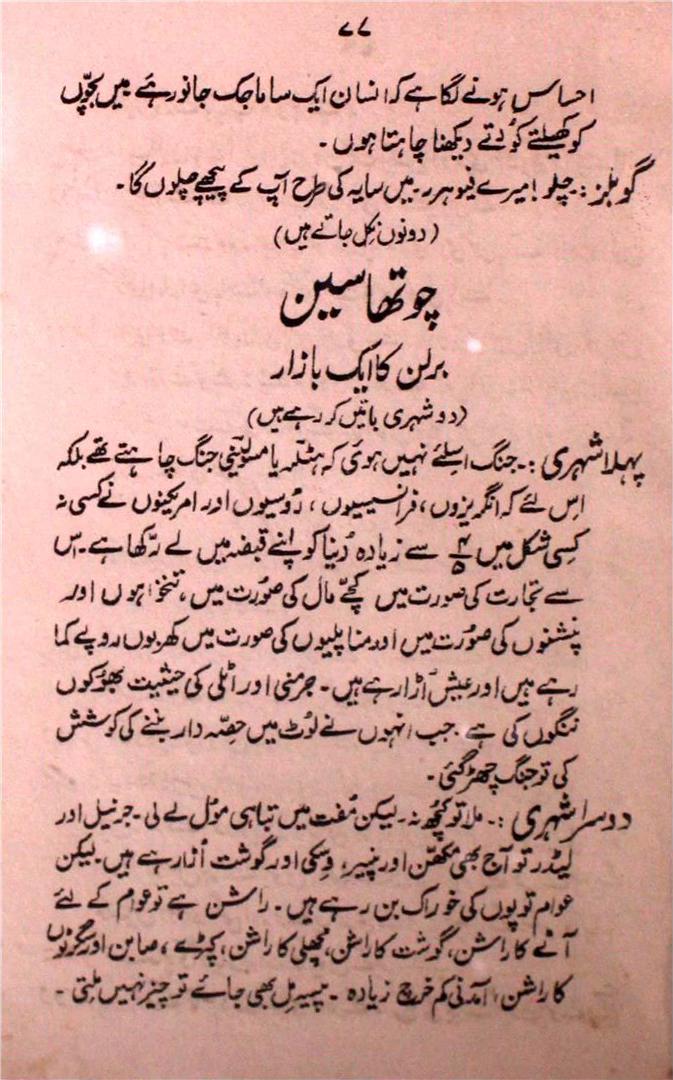 ۷۷
احساس ہونے لگا ہے کہ انسان ایک ساماجک جانور ہے میں بچّوں
کو کھیلتے کودتے دیکھنا چاہتا ہوں ۔
گوبلز :۔ چلو ! میرے فیوہرر ۔ میں سایہ کی طرح آپ کے پیچھے چلوں گا۔
(دونوں نکل جاتے ہیں)
چوتھا سین
برلن کا ایک بازار
(دو شہری باتیں کر رہے ہیں)
پہلا شہری :۔ جنگ اسلئے نہیں ہوئی کہ ہٹلر یا مسولینی جنگ چاہتے تھے بلکہ
اِس لئے کہ انگریزوں ، فرانسیسیوں ، رُوسیوں اور امریکنوں نے کسی نہ
کسی شکل میں ۴/۵ سے زیادہ دُنیا کو اپنے قبضہ میں لے رکھا ہے۔ اس
سے تجارت کی صورت میں کچّے مال کی صُورت میں ، تنخواہوں اور
پنشنوں کی صُورت میں اور مناپلیوں کی صورت میں کھربوں روپے کما
رہے ہیں اور عیش اُڑا رہے ہیں ۔ جرمنی اور اٹلی کی حیثیت بھُوکوں
ننگوں کی ہے ۔ جب انہوں نے لُوٹ میں حصّہ دار بننے کی کوشش
کی تو جنگ چھڑ گئی ۔
دوسرا شہری :۔ ملا تو کچُھ نہ ۔ لیکن مُفت میں تباہی مول لے لی ۔ جرنیل اور
لیڈر تو آج بھی مکھّن اور پنیر ، وسکی اور گوشت اُڑا رہے ہیں ۔ لیکن
عوام توپوں کی خوراک بن رہے ہیں ۔ راشن ہے تو عوام کے لئے
آٹے کا راشن ، گوشت کا راشن ، مچھلی کا راشن ، کپڑے ، صابن اور
کا راشن ، آمدنی کم خرچ زیادہ ۔ پیسہ مِل بھی جائے تو چیز نہیں ملتی ۔